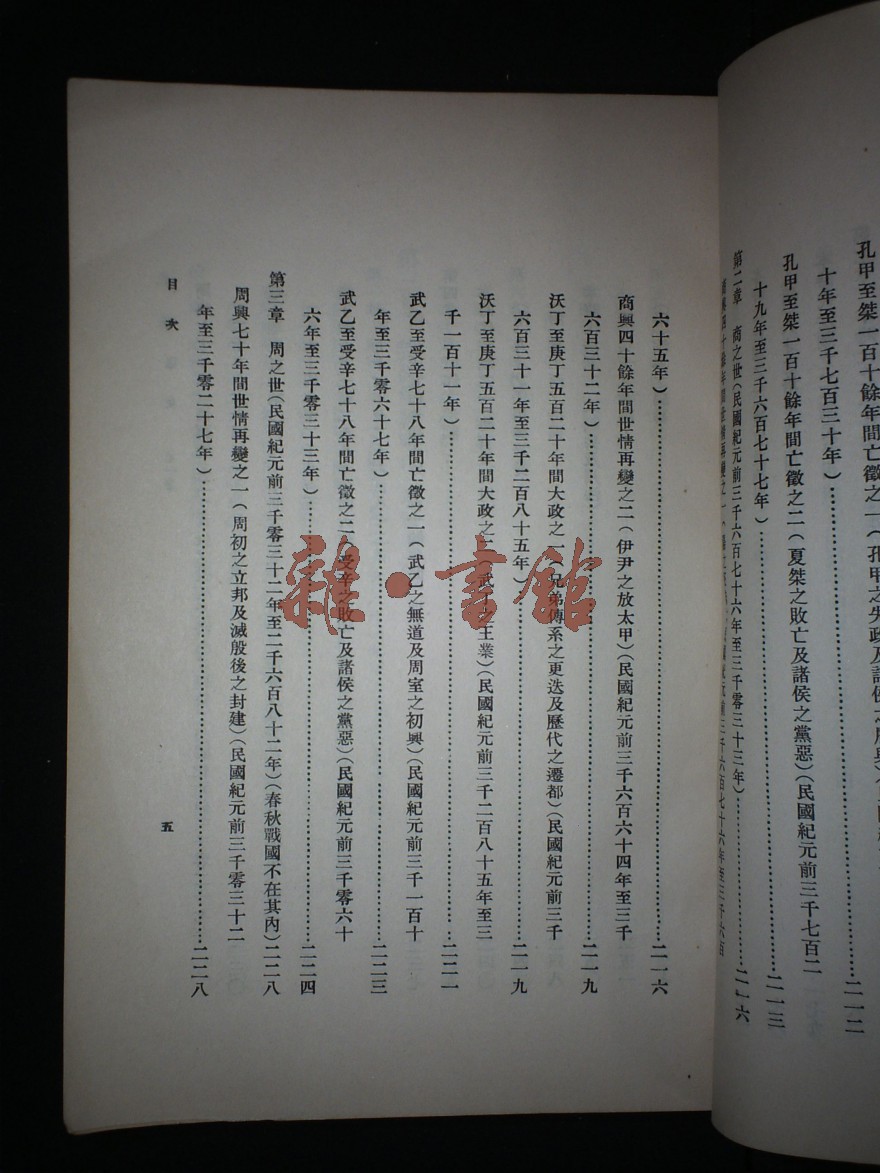 孔甲至桀一百十餘年間亡徵之一（孔甲之失政及諸侯之
二一二
十年至三千七百三十年）
孔甲至桀一百十餘年間亡徵之二（夏桀之敗亡及諸侯之黨惡）（民國紀元前三千七百二
十九年至三千六百七十七年）…………二一三
第二章　商之世（民國紀元前三千六百七十六年至三千零三十三年）…………二一六
六十五年）…………二一六
商興四十餘年間世情再變之二（伊尹之放太甲）（民國紀元前三千六百六十四年至三千
六百三十二年）…………二一九
沃丁至庚丁五百二十年間大政之一（兄弟傳系之更迭及歷代之遷都）（民國紀元前三千
六百三十一年至三千二百八十五年）…………二一九
沃丁至庚丁五百二十年間大政之二（武丁之王業）（民國紀元前三千二百八十五年至三
千一百十一年）…………二二一
武乙至受辛七十八年間亡徵之一（武乙之無道及周室之初興）（民國紀元前三千一百十
年至三千零六十七年）…………二二三
武乙至受辛七十八年間亡徵之二（受辛之敗亡及諸侯之黨惡）（民國紀元前三千零六十
六年至三千零三十三年）…………二二四
第三章　周之世（民國紀元前三千零三十二年至二千六百八十二年）（春秋戰國不在其內）二二八
周興七十年間世情再變之一（周初之立邦及滅殷後之封建）（民國紀元前三千零三十二
年至三千零二十七年）…………二二八
目次
五
雜·書館